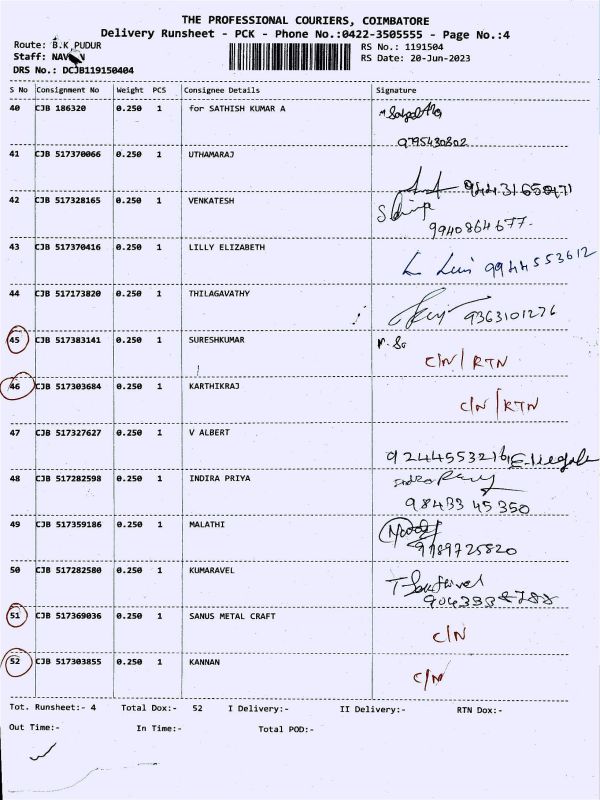 THE PROFESSIONAL COURIERS, COIMBATORE
Delivery Runsheet - PCK - Phone No.:0422-3505555 - Page No.:4
Route: B.K.PUDUR RS No.: 1191504
Staff: RS Date: 20-Jun-2023
DRS No.: DCJB119150404
S No Consignment No Weight PCS Consignee Details Signature
40 CJB 186320 0.250 1 for SATHISH KUMAR A
9795430802
41 CJB 517370066 0.250 1 UTHAMARAJ
42 CJB 517328165 0.250 1 VENKATESH
9940864677
43 CJB 517370416 0.250 1 LILLY ELIZABETH
9944553612
44 CJB 517173820 0.250 1 THILAGAVATHY
9363101276
45 CJB 517383141 0.250 1 SURESHKUMAR
C/N/RTN
46 CJB 517303684 0.250 1 KARTHIKRAJ
C/N/RTN
47 CJB 517327627 0.250 1 V ALBERT
48 CJB 517282598 0.250 1 INDIRA PRIYA
98433 45350
49 CJB 517359186 0.250 1 MALATHI
9789725820
50 CJB 517282580 0.250 1 KUMARAVEL
51 CJB 517369036 0.250 1 SANUS METAL CRAFT
C/N
52 CJB 517303855 0.250 1 KANNAN
C/N
Tot. Runsheet:- 4 Total Dox:- 52 I Delivery:- II Delivery:- RTN Dox:-
Out Time:- In Time:- Total POD:-